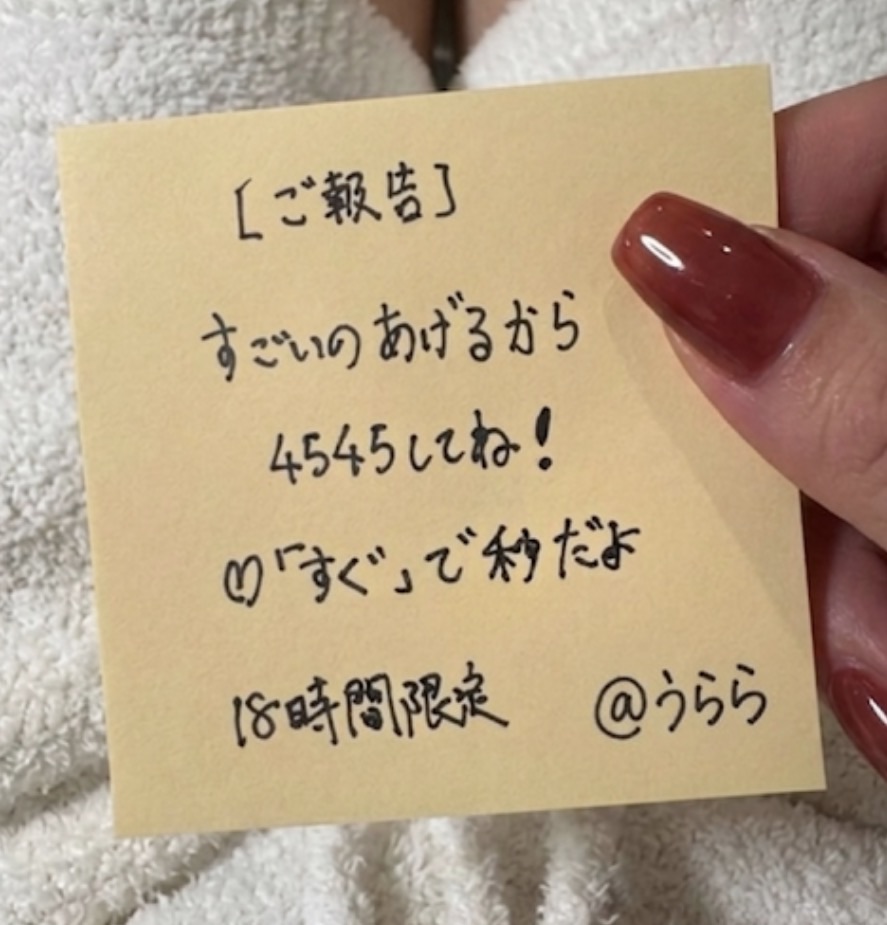 [ご報告]
すごいのあげるから
4545してね!
♡「すぐ」で秒だよ
18時間限定 @うらら